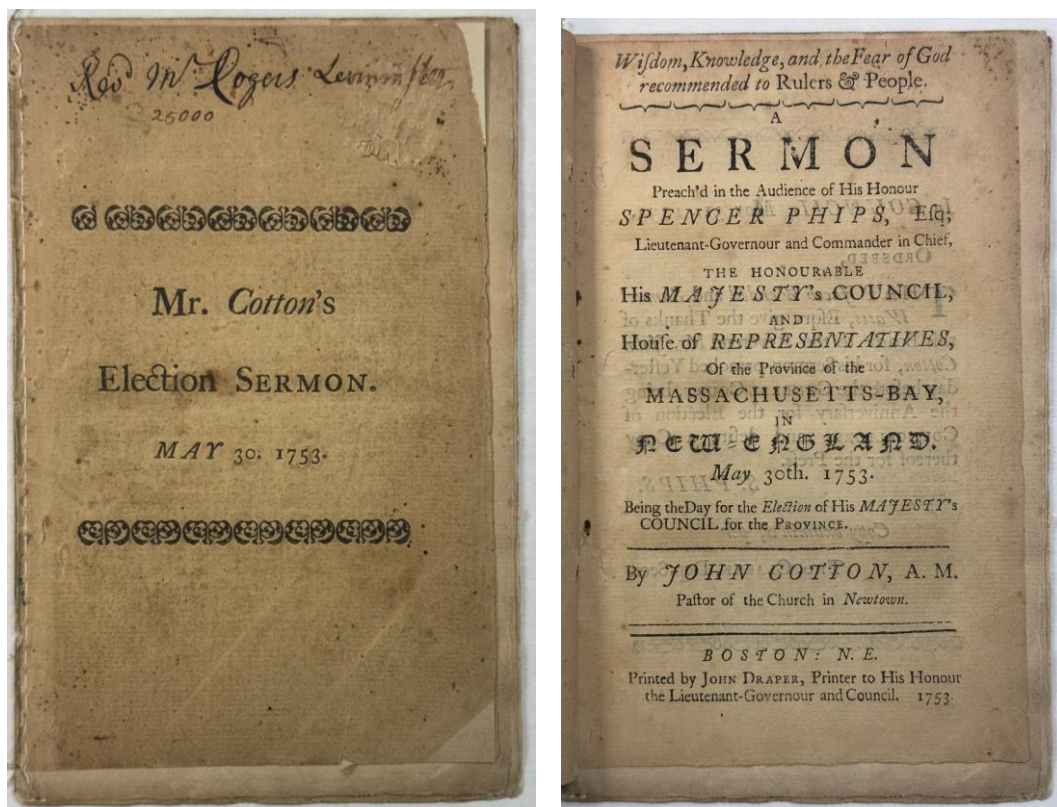 Revd Mr Rogers Leominster
25000
Mr. Cotton's
Election SERMON.
MAY 30. 1753.
Wiſdom, Knowledge, and the Fear of God
recommended to Rulers & People.
A
SERMON
Preach'd in the Audience of His Honour
SPENCER PHIPS, Eſq;
Lieutenant-Governour and Commander in Chief,
THE HONOURABLE
His MAJESTY's COUNCIL,
AND
Houſe of REPRESENTATIVES,
Of the Province of the
MASSACHUSETTS-BAY,
IN
NEW-ENGLAND.
May 30th. 1753.
Being the Day for the Election of His MAJESTY's
COUNCIL for the PROVINCE.
By JOHN COTTON, A. M.
Paſtor of the Church in Newtown.
BOSTON: N. E.
Printed by JOHN DRAPER, Printer to His Honour
the Lieutenant-Governour and Council. 1753.